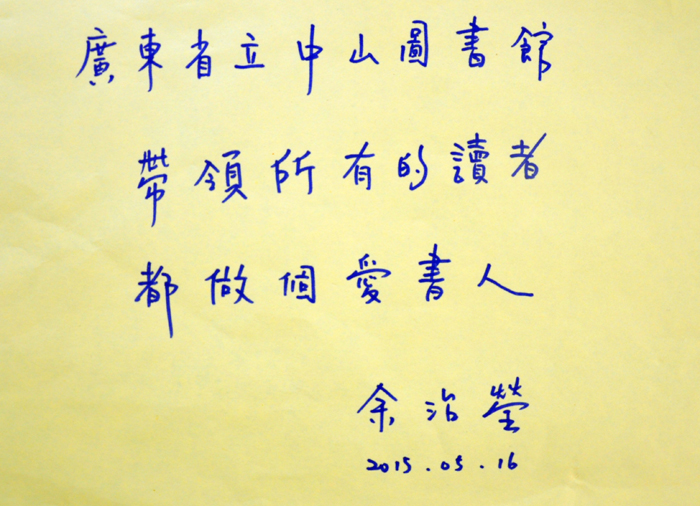 廣東省立中山圖書館
帶領所有的讀者
都做個愛書人
余治瑩
2015.05.16